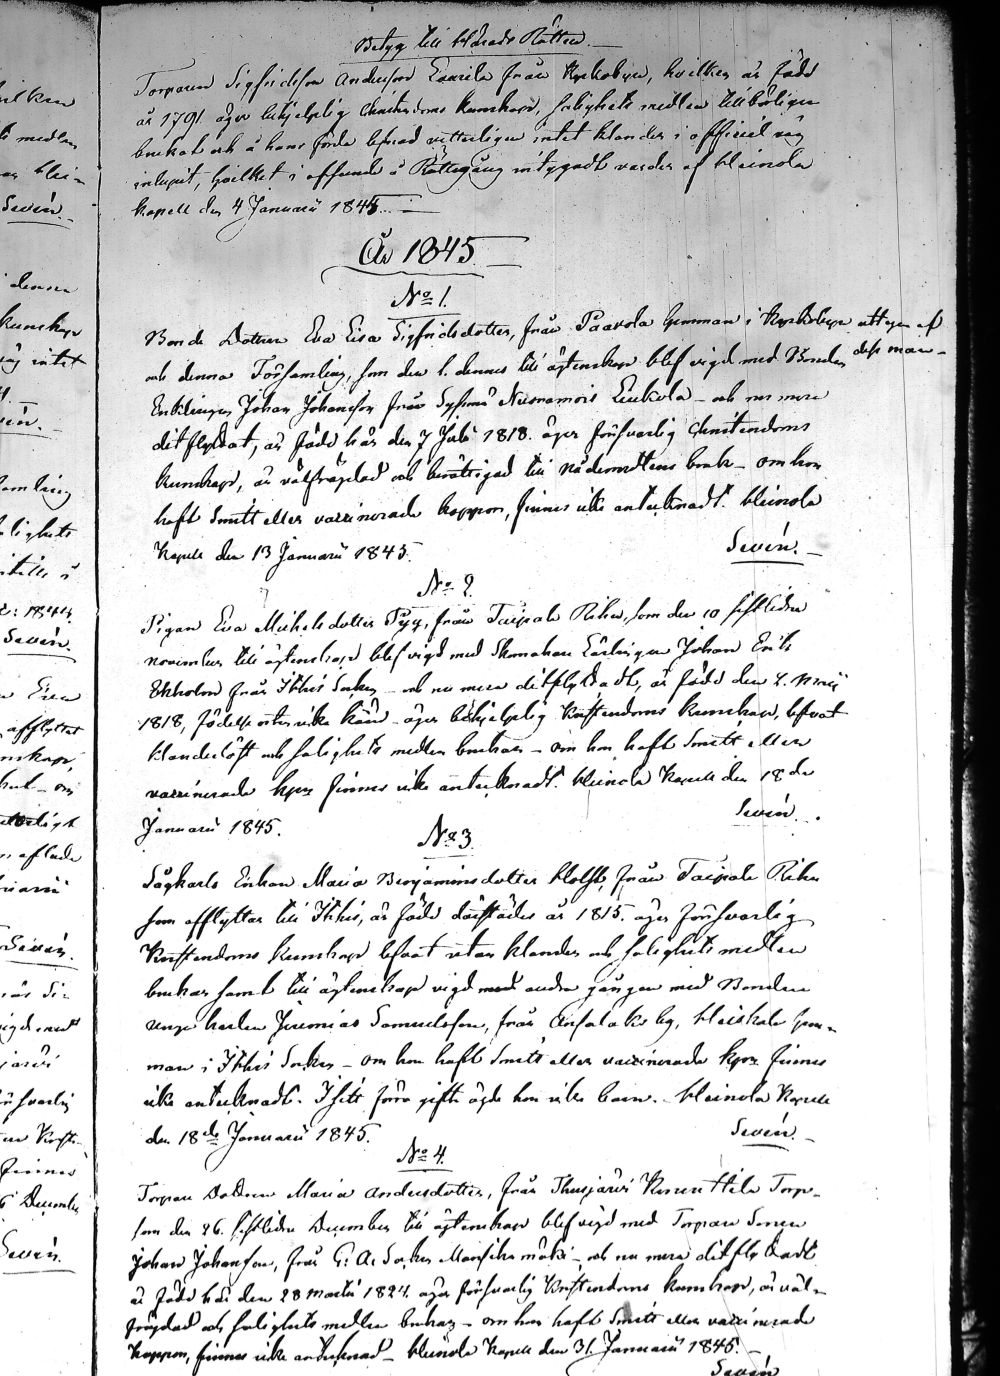 Betyg till Härads Rätten
Torparen Sigfrid Andersson från Kyrkobyn, hvilken är född
år 1791 äger behjelplig Christendoms kunskap, salighets medlen tillbörligen
brukat och å hans förda lefnad vetterligen intet klander i officiel väg
inlupit, hvilket i afseende å Rättegång intygadt varder af Heinola
Kapell den 4 Januarii 1845.
År 1845
No 1.
Bonde Dottren Eva Lisa Sigfridsdotter, från Paavola hemman i Kyrkobyn uttagen af
och denna Församling, som den 1. dennes till ägtenskap blef vigd med Bonden dess man
Enklingen Johan Johansson från Sysmä Nuoramois Leukola och nu mera
ditflyttat, är född här den 7 Julii 1818. äger försvarlig Christendoms
kunskap, är välfräjdad och berättigad till nådemedlens bruk – om hon
haft Smitt eller vaccinerade koppor, finnes icke anteknadt. Heinola
Kapell den 13 Januarii 1845.
Sevén.
No 2.
Pigan Eva Michelsdotter Pyy, från Taipale Rihu, som den 10 sistlidne
november till ägtenskap blef vigd med Skomakare Lärlingen Johan Erik
Ekholm från Ithis Socken – och nu mera ditflyttadt, är född den 2. Maji
1818, födelse orten icke känd – äger behjelplig Kristendoms kunskap, lefvat
klanderlöst och salighets medlen brukar – om hon haft Smitt eller
vaccinerade kpor finnes icke anteknadt. Heinola Kapell den 18de
Januarii 1845.
Sevén.
No 3.
Sågkarls Enkan Maria Benjaminsdotter Holst, från Taipale Rihu
som afflyttar till Ithis, är född därstädes år 1815. äger försvarlig
Kristendoms kunskap lefvat utan klander och salighets medlen
brukar samt till ägtenskap vigd med andra gången med Bonden
unge karlen Jeremias Samuelsson, från Ansalaks by, Heiskala hem-
man i Ithis Socken – om hon haft Smitt eller vaccinerade kpor finnes
icke anteknadt. I sitt förra gifte ägde hon icke barn. Heinola Kapell
den 18de Januarii 1845.
Sevén.
No 4.
Torpare Dottren Maria Andersdotter, från Thusjärvi Knuuttila Torp
som den 26. sistlidne December till ägtenskap blef vigd med Torpare Sonen
Johan Johansson, från G: A: Socken Mansikkamäki – och nu mera ditflyttadt
är född här den 28 Martii 1824. äger försvarlig Kristendoms kunskap, är väl-
fräjdad och salighets medlen brukar – om hon haft Smitt eller vaccinerade
koppor, finnes icke anteknad – Heinola Kapell den 31. Januarii 1845.
Sevén